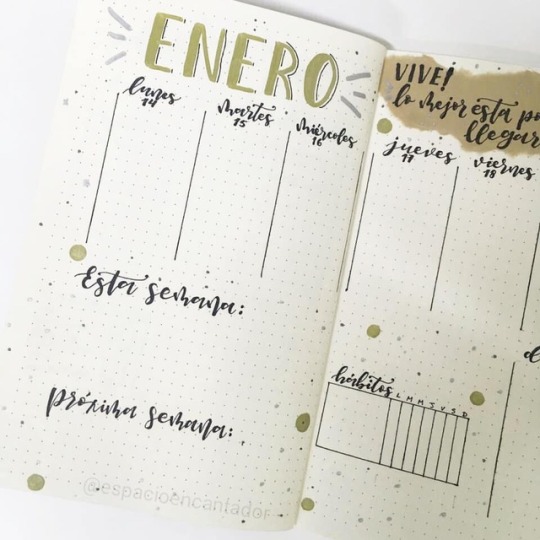 ENERO
lunes
14
martes
15
miércoles
16
Esta semana:
próxima semana:
@espacioencantador
VIVE!
lo mejor está po
llegar
jueves
17
viernes
18
hábitos
L M M J V S D
d